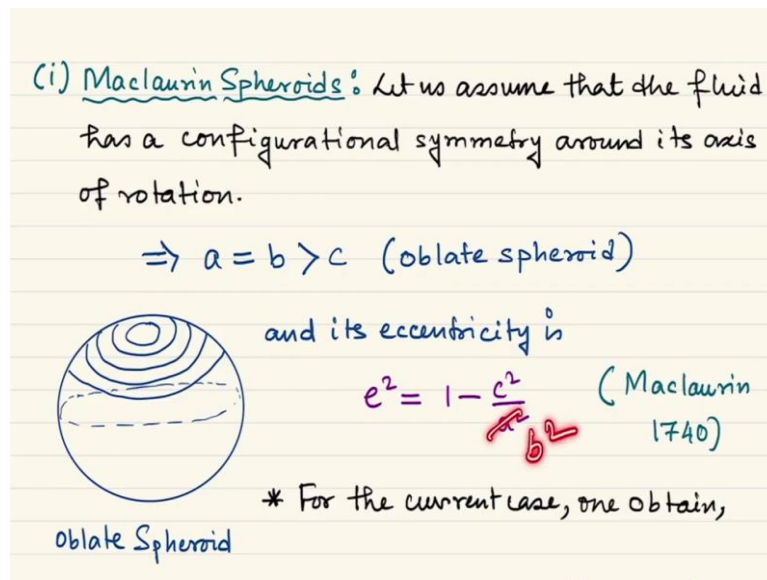 (i) Maclaurin Spheroids: Let us assume that the fluid
has a configurational symmetry around its axis
of rotation.
⇒ a = b > c (oblate spheroid)
and its eccentricity is
e² = 1 - c²/a² b²
(Maclaurin
1740)
* For the current case, one obtain,
Oblate Spheroid